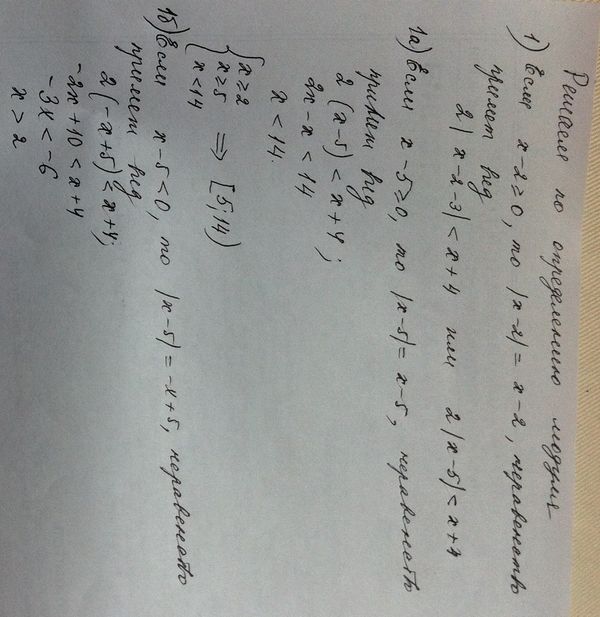 Решаем по определению модуля
1) Если x-2≥0, то |x-2| = x-2, неравенство
примет вид
2|x-2-3| < x+4 или 2|x-5| < x+4
1а) Если x-5≥0, то |x-5| = x-5, неравенств
примет вид
2(x-5) < x+4;
2x-x < 14
x < 14.
{ x≥2
x≥5 ⇒ [5;14)
x<14
1б) Если x-5<0, то |x-5| = -x+5, неравенство
примет вид
2(-x+5) < x+4;
-2x+10 < x+4
-3x < -6
x > 2